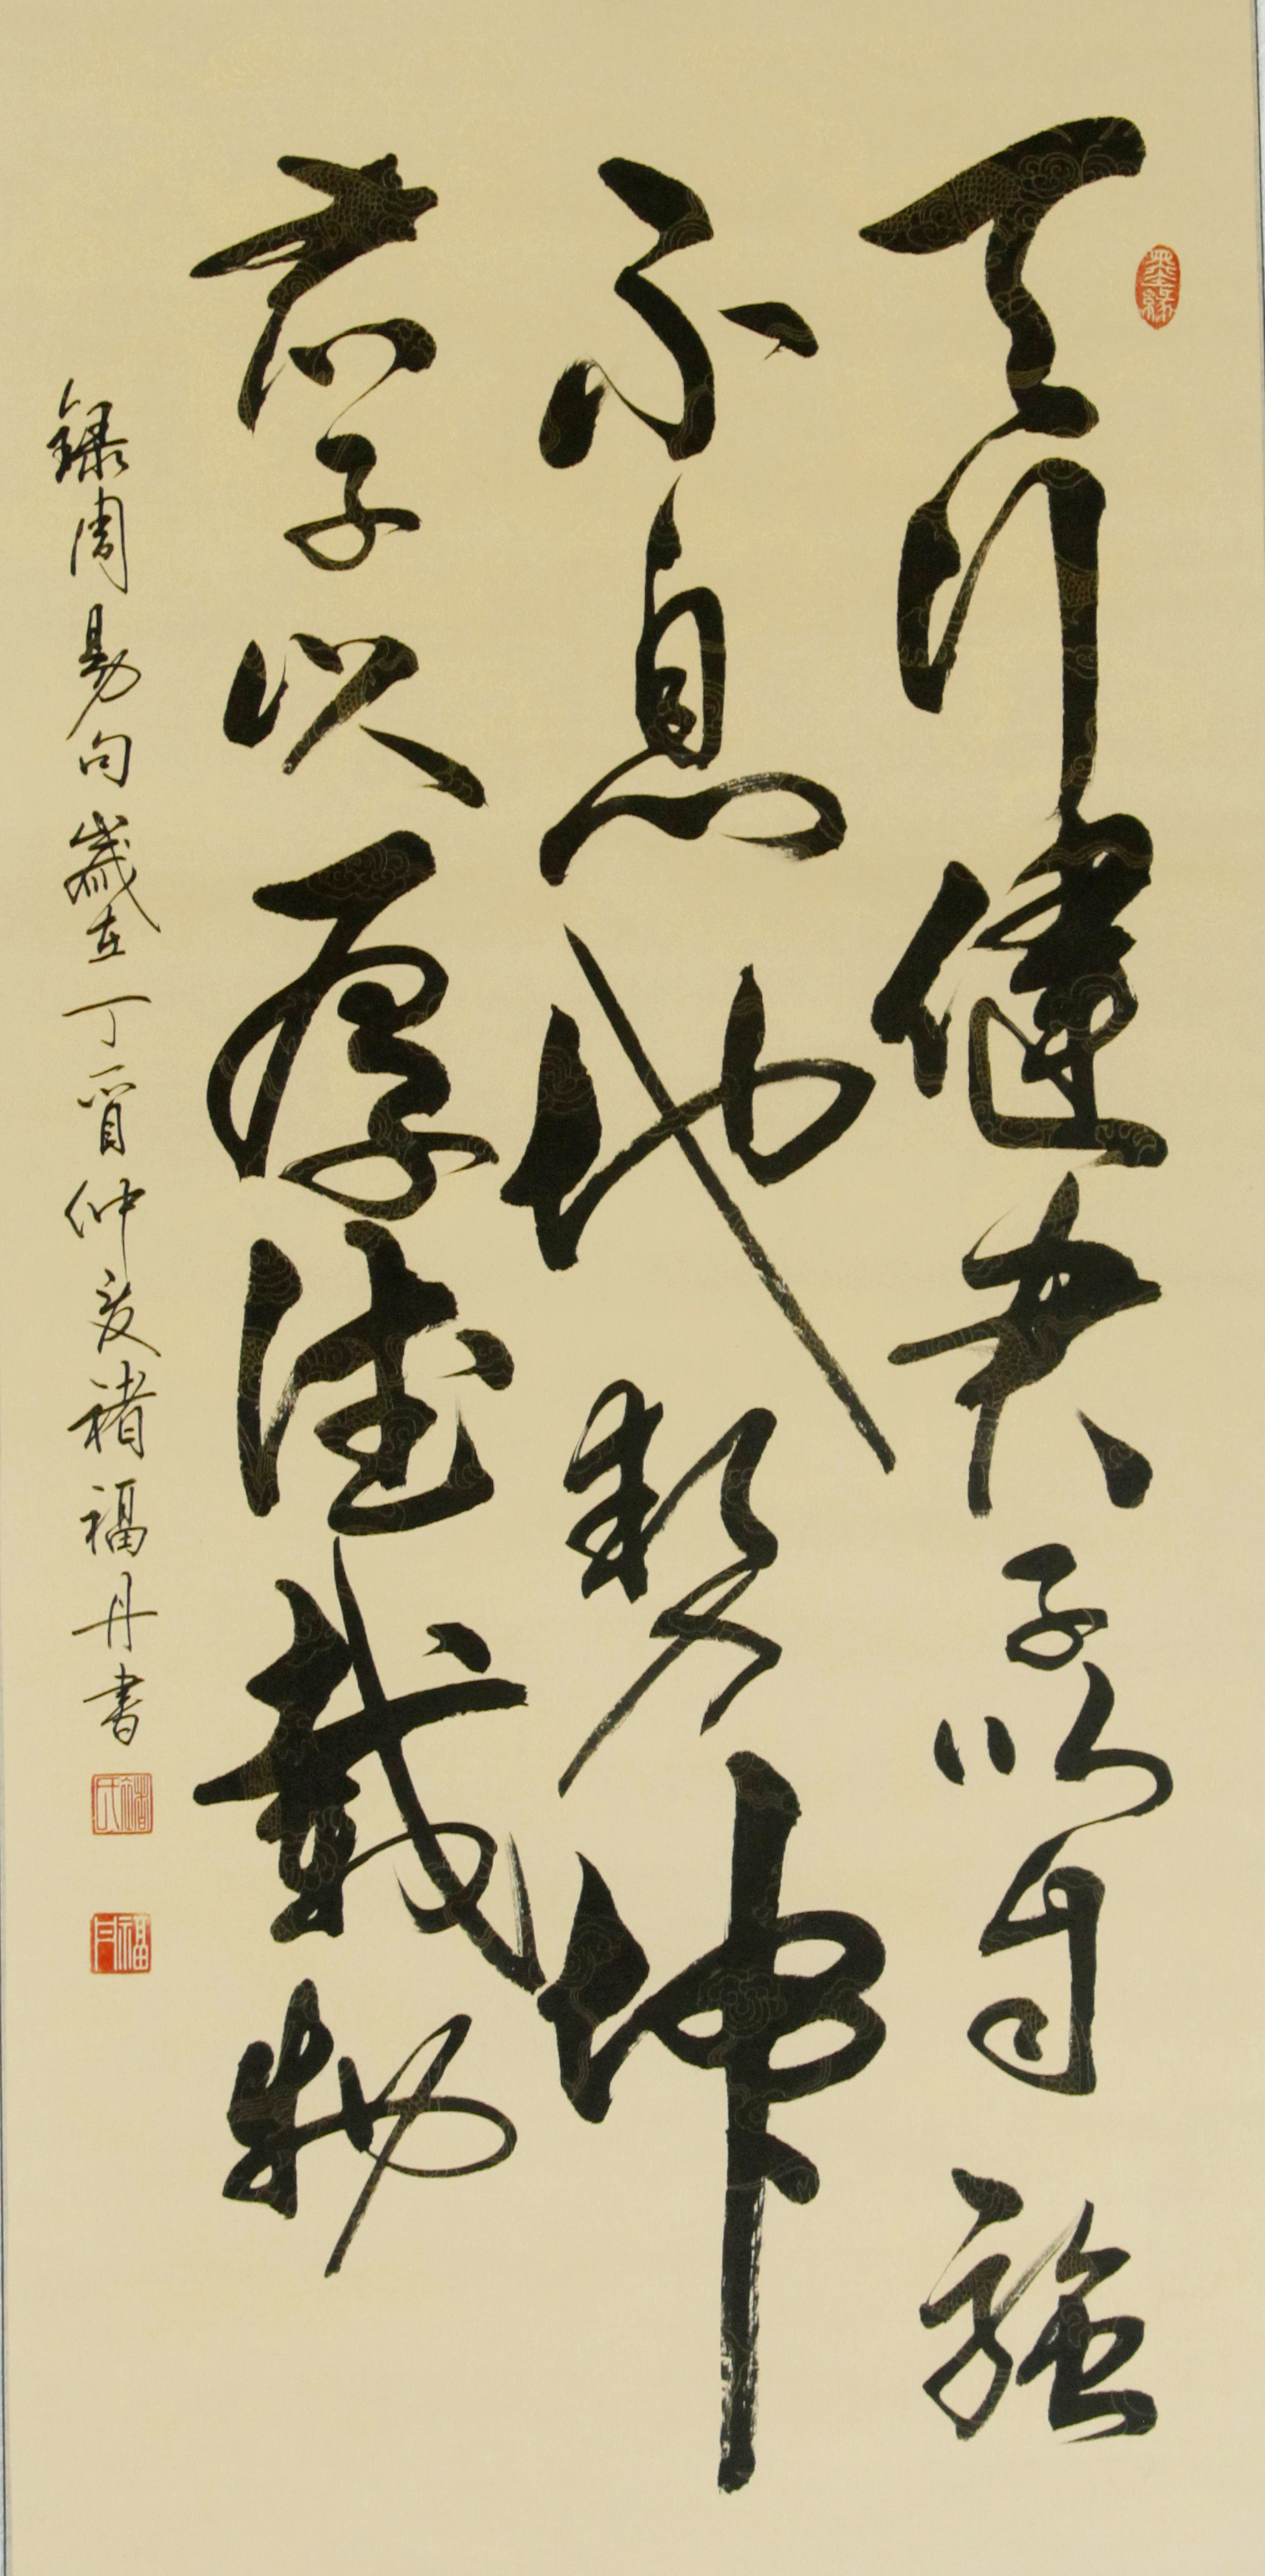 墨緣
天行健君子以自強
不息地勢坤
君子以厚德載物
錄周易句歲在丁酉仲夏褚福丹書
褚氏
福丹